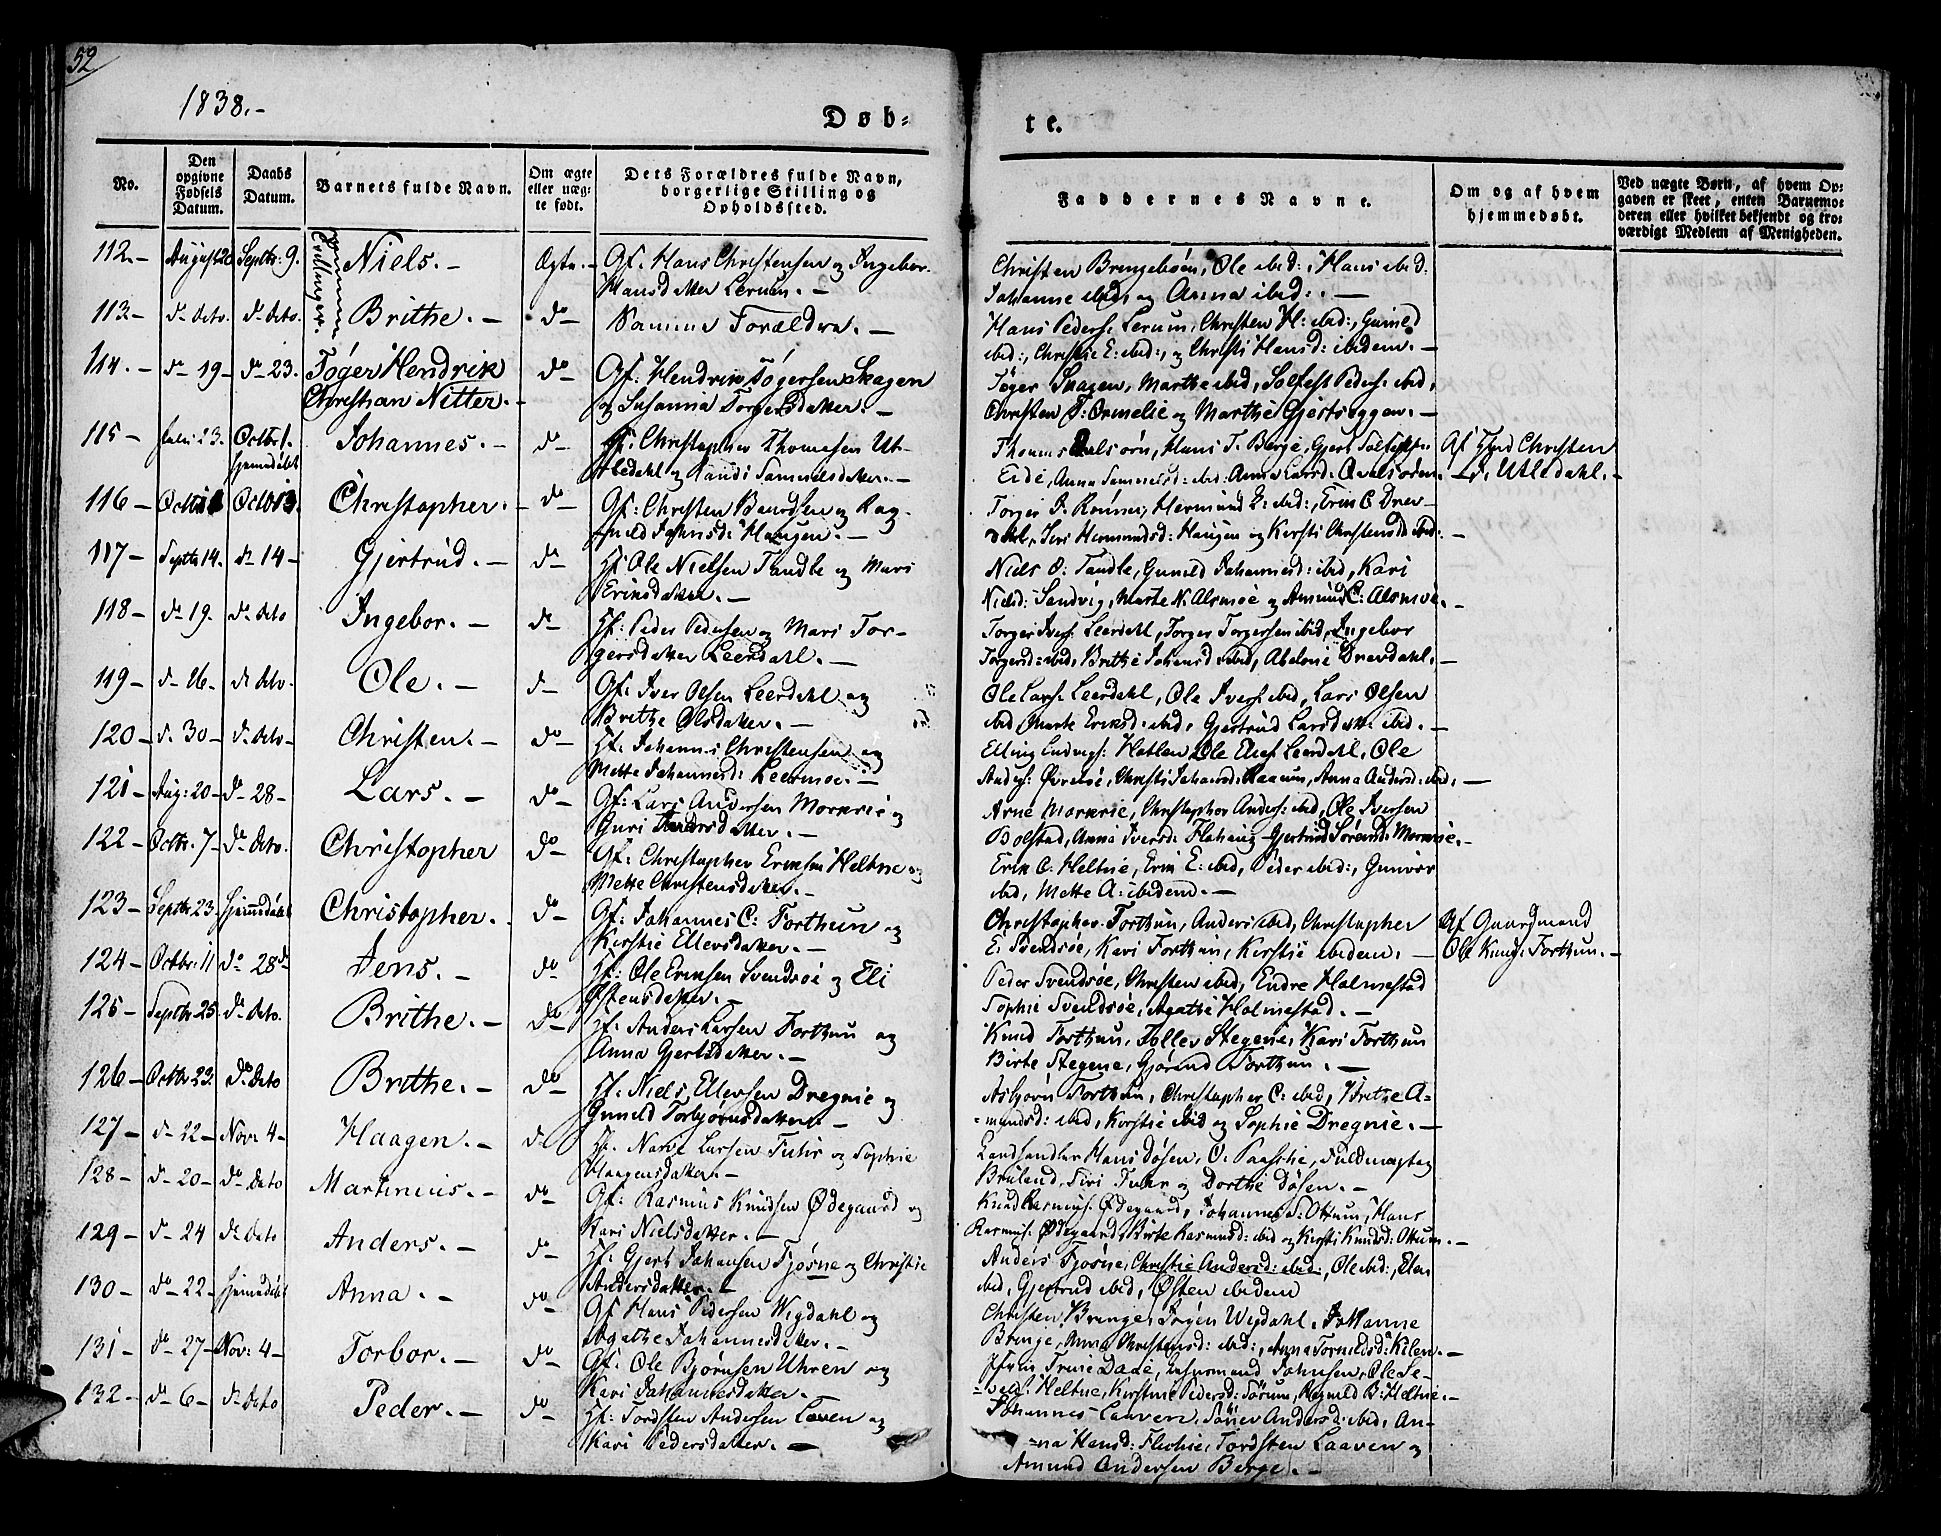 52
1838.-
Døb-
te.
No.
Den opgivne Fødsels Datum.
Daabs Datum.
Barnets fulde Navn.
Om ægte eller uægte født.
Dets Forældres fulde Navn, borgerlige Stilling og Opholdssted.
Faddernes Navne.
Om og af hvem hjemmedøbt.
Ved uægte Børn, af hvem Opgaven er skeet, enten Barnemoderen eller hvilket bekjendt og troværdigt Medlem af Menigheden.
112.- August 20 Septbr: 9. Tvillinger. Niels.- Ægte.- Gf. Hans Christensen og Ingebor.
Hansdatter Lerum.-
Christen Bringebøen, Ole ibid:, Hans ibid:
Johanne ibid, og Anna ibid:.-
113.- do Dito. do Dito. Brithe.- do- Samme Forældre.-
Hans Peders: Lerum, Christen H: ibid:, Gunild
ibid:, Christie E: ibid:, og Christi Hansd: ibidem.-
114.- do 19- do 23. Tøger Hendrik do- Gf: Hendrik Tøgersen Skagen
Christian Nitter.- og Susanna Torgersdatter.-
Tøger Skagen, Marthe ibid, Solfest Peders: ibid,
Christen T: Ormelie og Marthe Gjertseggen.-
115- 23. Octbr 1. Johannes.- do- Hf: Christopher Thomesen Ut-
hjemmedøbt
ledahl og Randi Samuelsdatter.-
Thomes Qvalsørn, Hans T. Berge, Gjert Solfests:
Eide, Anna Sammelsd: ibid: Anna Larsd: Qvalsøren.-
Af Christen
Utledahl.-
116- Octbr Octbr 13. Christopher.- do- Gf: Christen Baardsen og Rag-
nild Johnsd: Haugen.-
Torger O. Rønnei, Hermund E: ibid:, Erik O Drev-
dahl, Siri Hermundsd: Haugen og Kirsti Christensd ibid:.-
117- Septbr 14. do 14- Gjertrud.- do Hf: Ole Nielsen Tandle og Mari
Eriksdatter.-
Niels O: Tandle, Gunild Johannesd: ibid, Kari
Nielsd: Sandvig, Marthe N. Alsmoe og Amund C: Alsmoe.-
118- do 19. do Dito Ingebor.- do- Hf: Peder Pedersen og Mari Tor-
gersdatter Leerdahl.-
Torger Ivers: Leerdahl, Torger Torgersen ibid, Ingebor
Torgersd: ibid, Brithe Johansd: ibid, Abelone Drevdahl.-
119- do 26. do Dito. Ole.- d- Gf: Iver Olsen Leerdahl og
Brithe Olsdatter.-
Ole Lars: Leerdahl, Ole Ivers: ibid, Lars Olsen
ibid, Marthe Eriksd: ibid, Gjertrud Larsdatt: ibid.-
120- do 30- do Dito- Christen.- do- Hf: Johannes Christensen og
Mette Johannesd: Leermoe.-
Elling Ludvigs: Hatlen, Ole Elefs: Leerdahl, Ole
Anders: Øvrebøe, Christi Johansd: Raaum, Anna Andersd: ibid.-
121- Aug: 20- do 28- Lars.- do- Gf: Lars Andersen Morkrie og
Guri datter.-
Arne Morkrie, Christopher Anders: ibid, Ole Iversen
Bolstad, Anna Iversd: Flahaug Gjertrud Sørensd: Morkrie.-
122- Octbr. 7- do Dito. Christopher do- Gf: Christopher Eriksen Heltne og
Mette Christensdatter.-
Erik C: Heltne, Erik E: ibid, Peder ibid:, Gunvor
ibid, Mette A: ibidem.-
123- Septbr 23. hjemmedøbt Christopher.- do- Gf: Johannes C: Forthun og
Kirstie Ellevsdatter.-
Christopher Forthun, Anders ibid, Christopher
E: Svendsøe, Kari Forthun, Kirstie ibidem.-
Af Gaardmand
Ole Knuds: Forthun.-
124- Octbr: 11 do 28do Jens.- do Hf: Ole Eriksen Svendsøe og Eli
Østensdatter.-
Peder Svendsøe, Christen ibid, Endre Holmestad
Sophie Svendsøe, Agathe Holmestad.-
125- Septbr 25. do Dito. Brithe.- do- Hf: Anders Larsen Forthun og
Anna Gjertsdatter.-
Knud Forthun, Tollev Stegene, Kari Forthun
Birte Stegene, Gjørond Forthun.-
126- Octbr 23. do Dito Brithe.- do- Hf: Niels Ellevsen Dregnie og
Gunild Torbjørnsdatter.-
Asbjørn Forthun, Christopher C: ibid, Brithe A-
mundsd: ibid, Kirstie ibid og Sophie Dregnie.-
127- do 22- Novr 4- Haagen.- do Hf: Larsen og Sophie
Haagensdatter.-
Landhandler Hans Døsen, O. Paasche, Fuldmægtig
Brulund, Siri og Dorthe Døsen.-
128- do 20- do Dito Martinius.- do- Gf: Rasmus Knudsen Ødegaard og
Kari Nielsdatter.-
Knud Rasmus: Ødegaard, Johannes S: Ottum, Hans
Rasmus: Ødegaard, Birte Rasmusd: ibid og Kirsti Knudsd: Ottum.-
129- do 24 do Dito Anders.- do- Hf: Gjert Johansen Fjøsne og Christie
Andersdatter.-
Anders Fjøsne, Christie Andersd: ibid:, Ole ibid:, Elen
ibid, Gjertrud ibid, Østen ibidem
130- do 22- hjemmedøbt Anna.- do Gf Hans Pedersen Wigdahl og
Agathe Johannesdatter.-
Christen Bringe, Jørgen Wigdahl, Johanne
Bringe, Anna Christensd: ibid:, Anna Tormodsd: Kilen.-
131- do 27- Nov: 4- Torbor.- do- Gf: Ole Bjørnsen Uhren og
Kari Johannesdatter.-
Dade, Johnsen, Ole Se-
Heltne, Kirstine Pedersd: Sørum, Ragnild B: Heltne.-
132- do 6- do Dito Peder.- do- Hf: Tordsten Andersen Laven og
Kari Pedersdatter.-
Johannes Laaven, Andersd: ibid, An-
na Hansd: Flohie, Tordsten Laaven og
Amund Andersen Berge.-